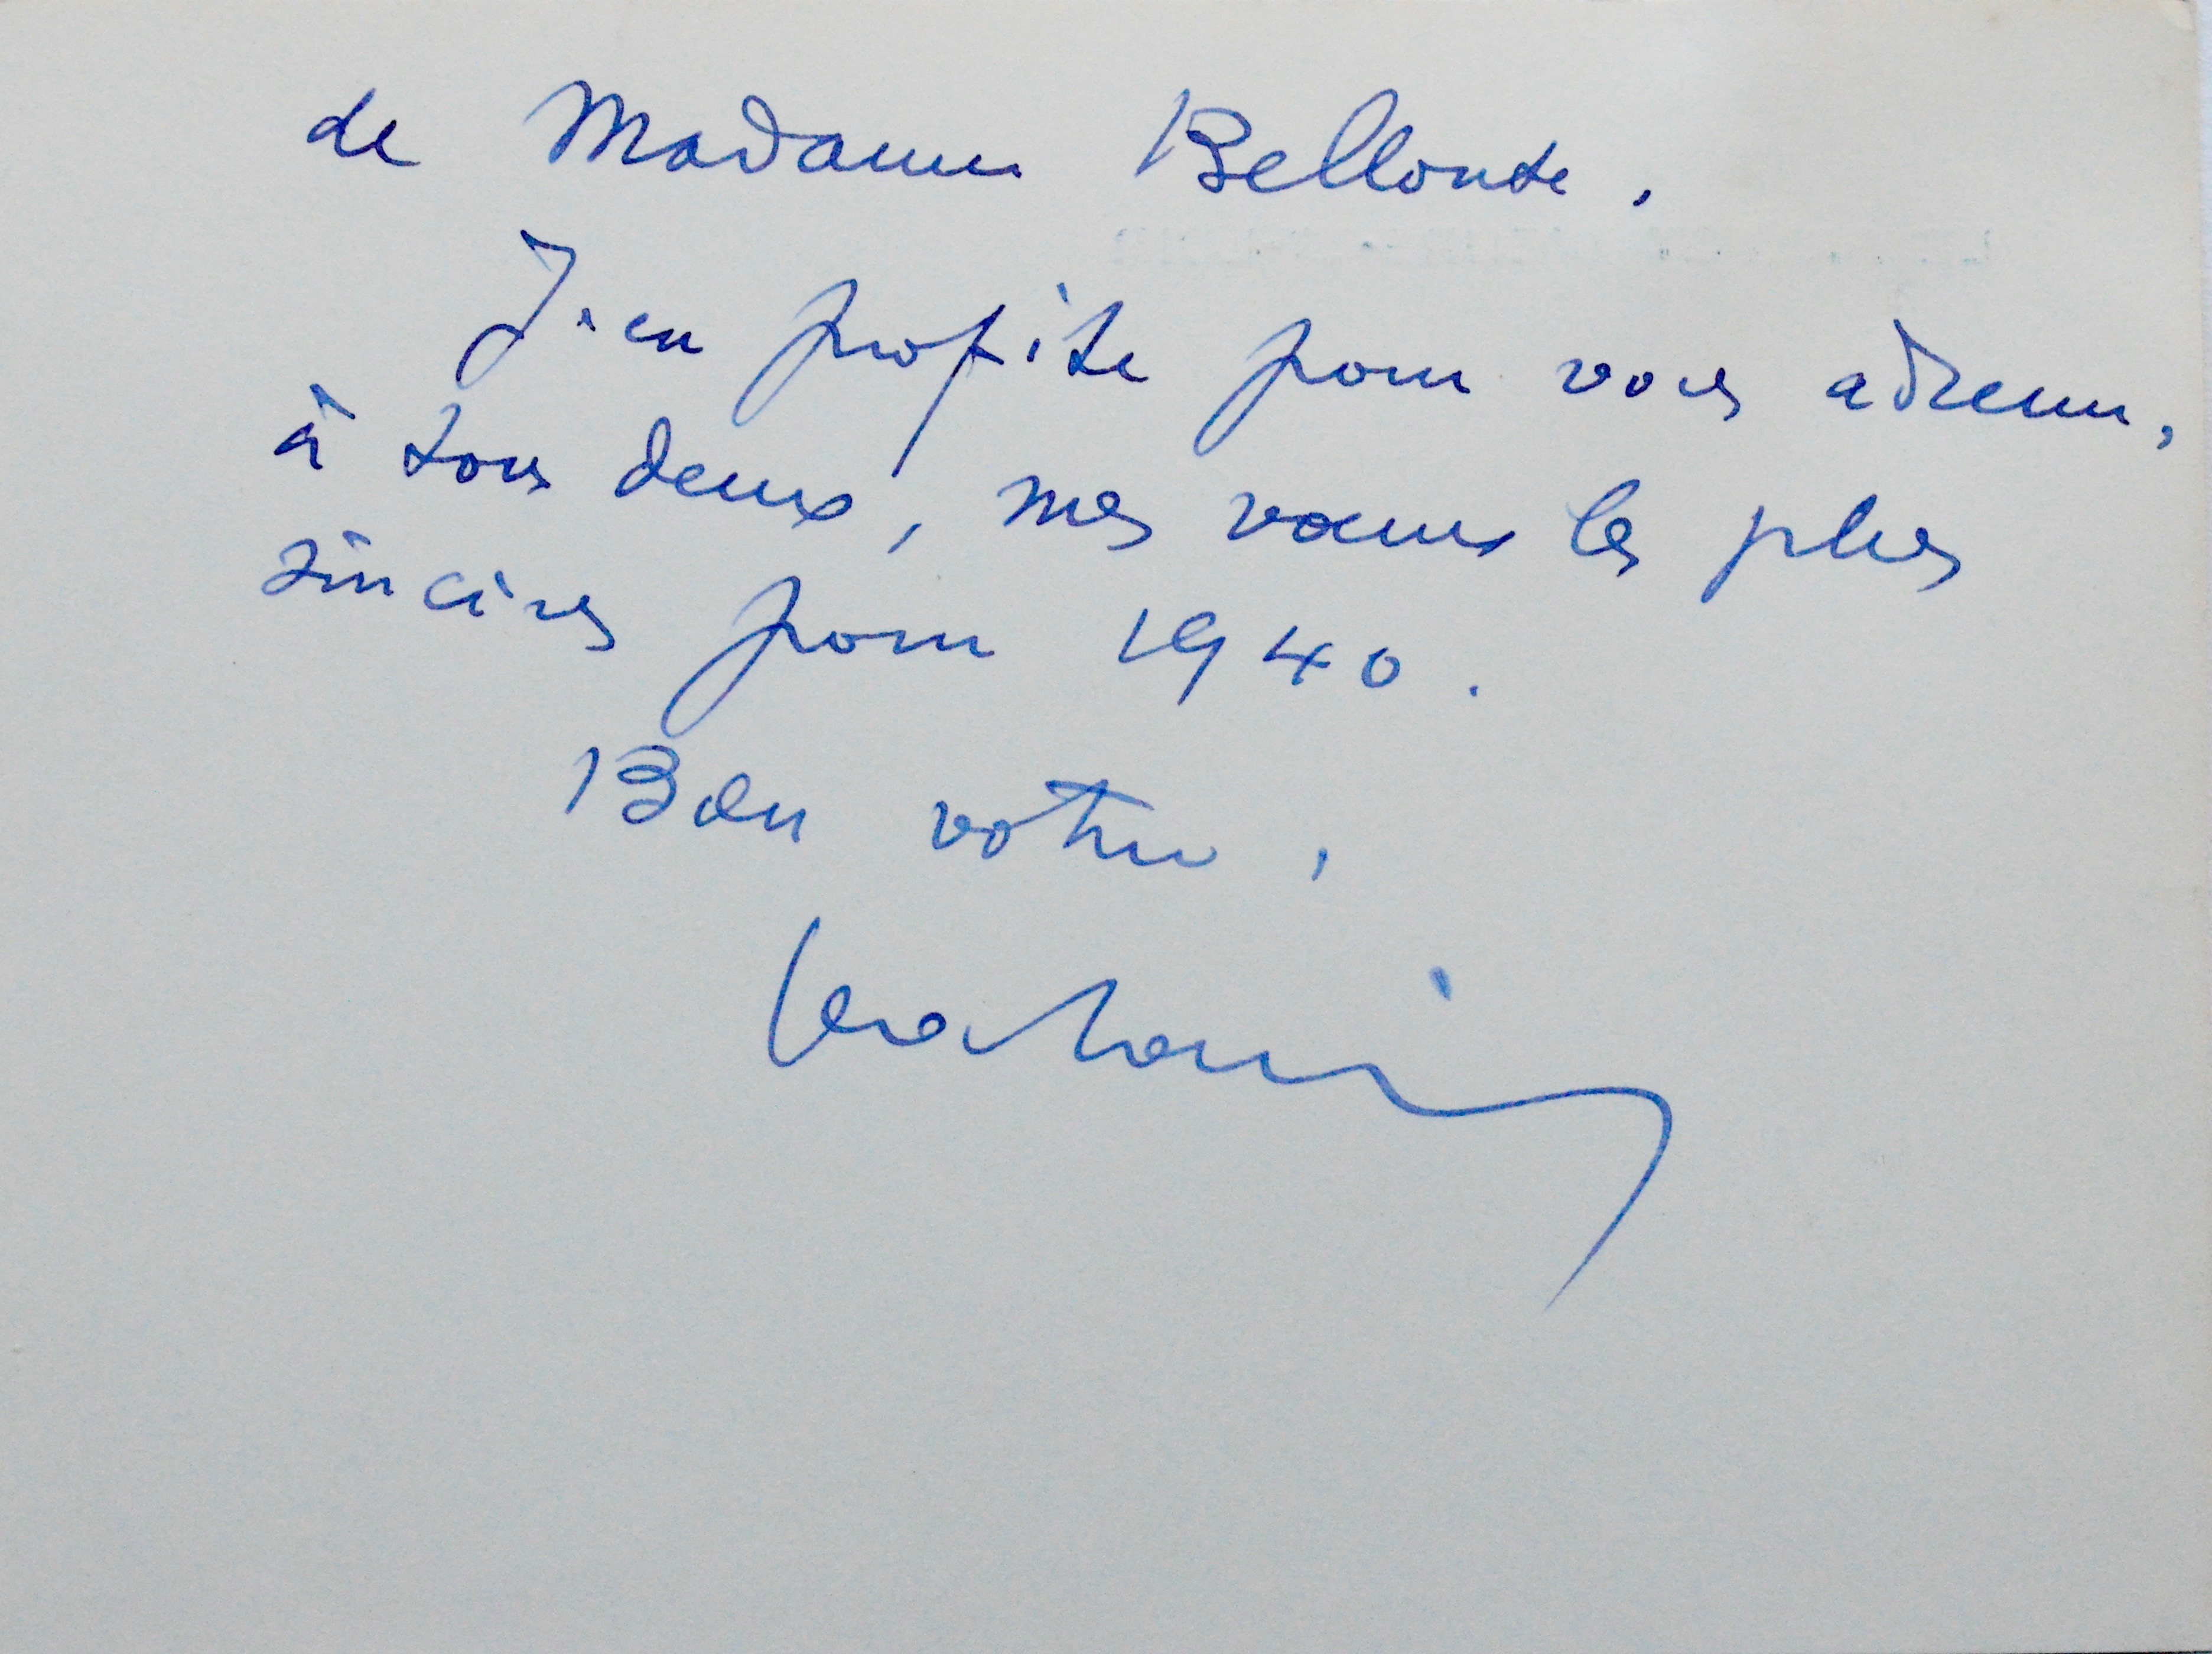 de Madame Bellonte.
J'en profite pour vous adresser,
à tous deux, mes vœux les plus
sincères pour 1940.
Bien votre,